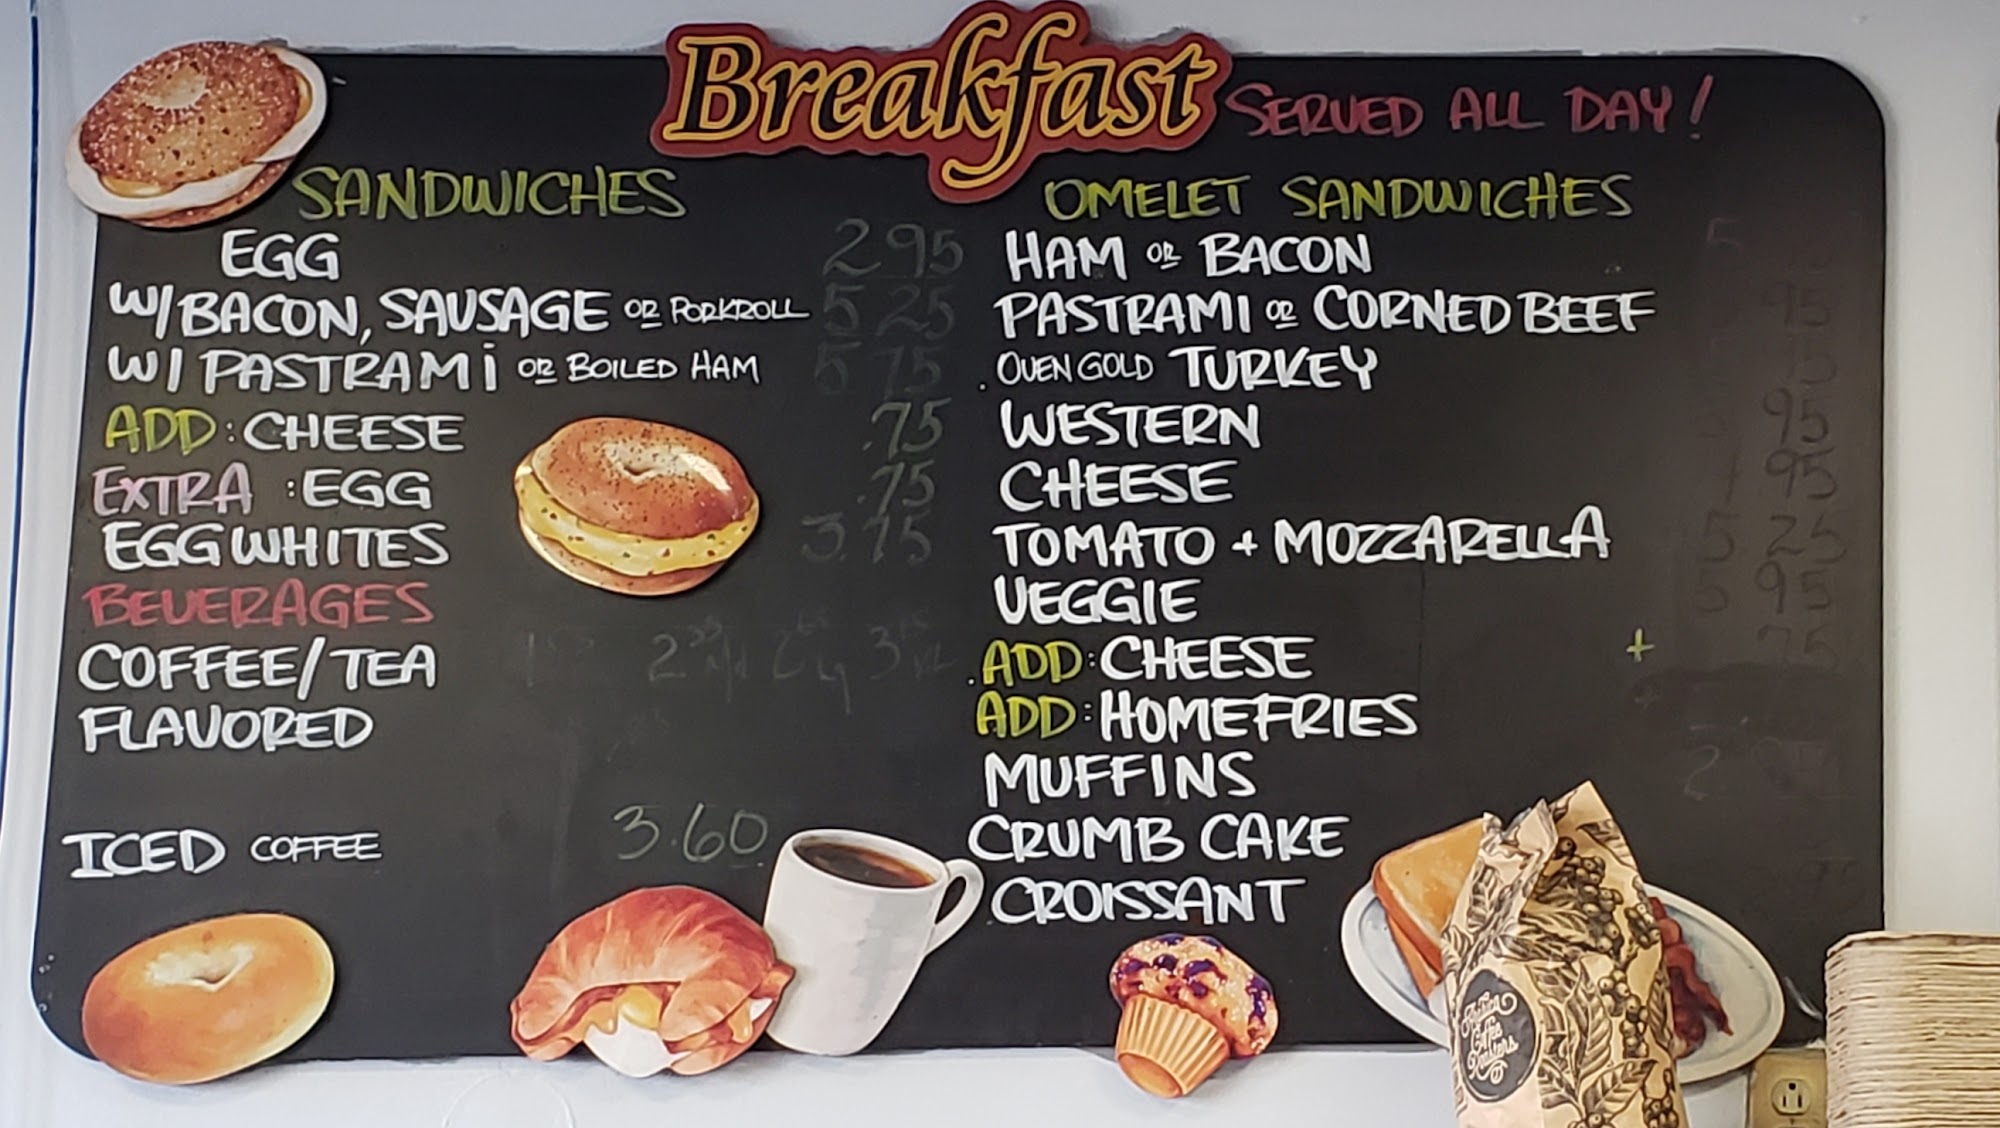 Breakfast SERVED ALL DAY!
SANDWICHES
EGG 2 95
W/BACON, SAUSAGE OR PORKROLL 5 25
W/ PASTRAMI OR BOILED HAM 5 75
ADD: CHEESE .75
EXTRA: EGG .75
EGG WHITES 3.75
BEVERAGES
COFFEE/TEA
FLAVORED
ICED COFFEE 3.60
OMELET SANDWICHES
HAM OR BACON 5
PASTRAMI OR CORNED BEEF 95
OVEN GOLD TURKEY
WESTERN 95
CHEESE 95
TOMATO + MOZZARELLA 5 25
VEGGIE 5 95
ADD: CHEESE + 75
ADD: HOMEFRIES
MUFFINS 2
CRUMB CAKE
CROISSANT
Coffee
Roasters